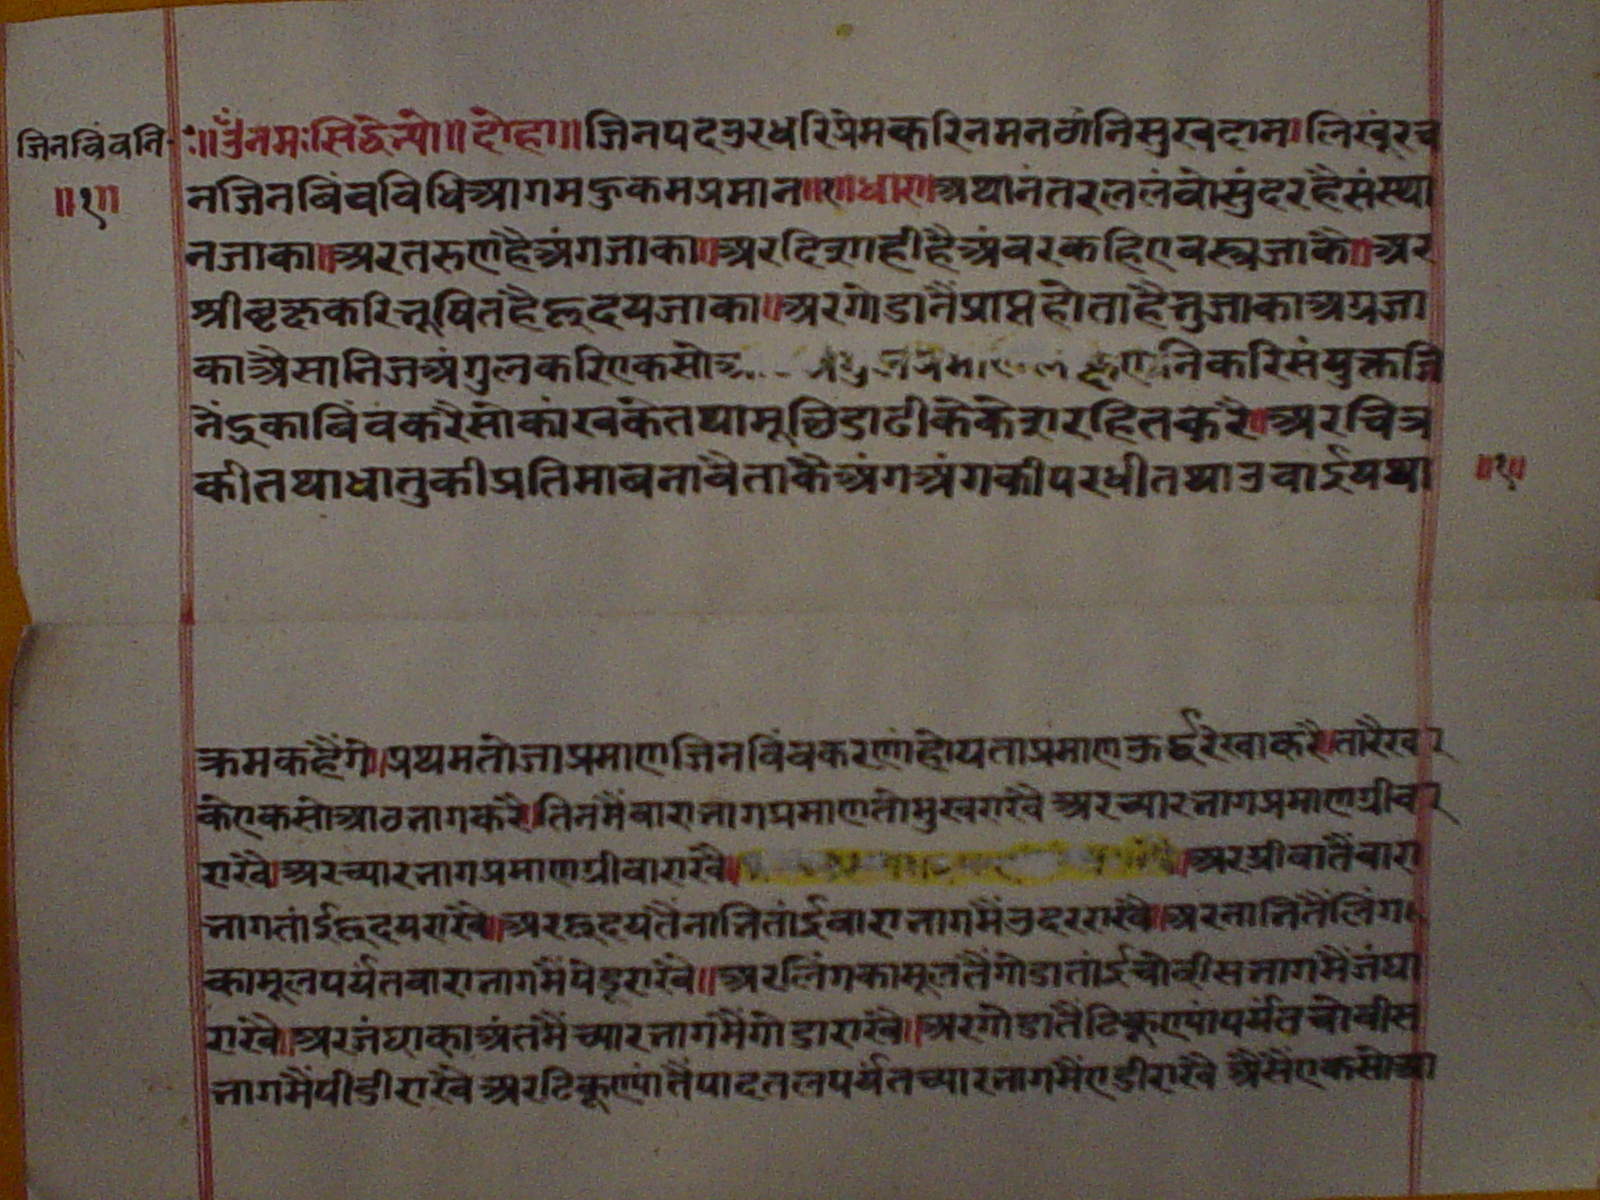 जिनबिंबनि॰
॥१॥
॥ॐनमःसिद्धेभ्यो॥दोहा॥जिनपदउरधरिप्रेमकरिनमनठांनिसुखदान।लिखूंरच
नजिनबिंबविधिआगमकुकमप्रमान॥१॥धारा॥अथानंतरललंबोसुंदरहैसंस्था
नजाका॥अरतरुणहैअंगजाका॥अरदिशाहीहैअंबरकहिएवस्त्रजाकै॥अर
श्रीवृक्षकरिभूषितहैहृदयजाका॥अरगोडातैंप्राप्तहोताहैभुजाकाअग्रजा
काअैसानिजअंगुलकरिएकसो निकरिसंयुक्तजि
नेंद्रकाबिंबकरैसोकांखकेतथामूछिडाढीकेकेशरहितकरै॥अरचित्र
कीतथाधातुकीप्रतिमाबनावैताकैअंगअंगकीपरधीतथाउचाईयथा
॥१॥
क्रमकहैंगे॥प्रथमतोजाप्रमाणजिनबिंबकरणांहोयताप्रमाणऊर्द्धरेखाकरै॥तारेख
केएकसोआठभागकरै॥तिनमैंबाराभागप्रमाणतोमुखराखै अरच्यारभागप्रमाणग्रीवा
राखै॥अरच्यारभागप्रमाणग्रीवाराखै॥ ॥अरग्रीवातैंबारा
भागतांईहृदयराखै॥अरहृदयतैंनाभितांईबाराभागमैंउदरराखै॥अरनाभितैंलिंग
कामूलपर्यंतबाराभागमैंपेडूराखै॥अरलिंगकामूलतैंगोडातांईचोबीसभागमैंजंघा
राखै॥अरजंघाकाअंतमैंच्यारभागमैंगोडाराखै॥अरगोडातैंटिकूण्यांपर्यंतचोबीस
भागमैंपीडीराखै अरटिकूण्यांतैंपादतलपर्यंतच्यारभागमैंएडीराखै अैसैंएकसोआ